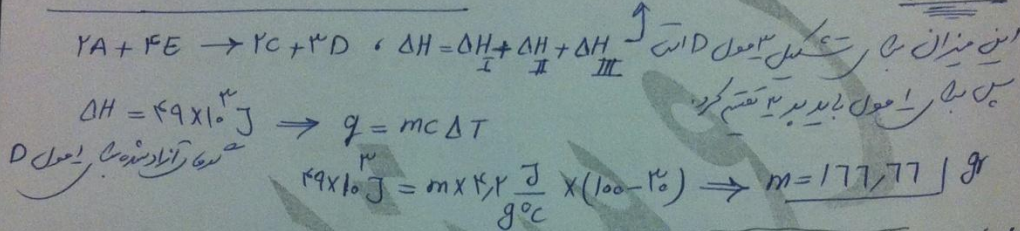 ۲A + ۴E → ۲C + ۳D ، ΔH = ΔH_I + ΔH_II + ΔH_III
این میزان برای تشکیل ۳ مول D است
پس برای ۱ مول باید بر ۳ تقسیم کرد.
ΔH = ۴۹×۱۰^۳ J ⇒ q = mcΔT
گرمای آزاد شده برای ۱ مول D
۴۹×۱۰^۳ J = m × ۴,۲ J/g°C × (۱۰۰ - ۳۰) ⇒ m = ۱۶۶,۶۶ gr